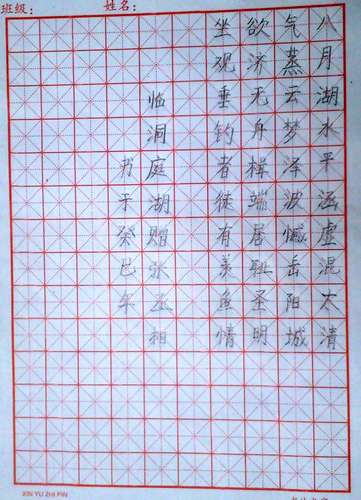 班级：
姓名：
八月湖水平涵虚混太清
气蒸云梦泽波憾岳阳城
欲济无舟楫端居耻圣明
坐观垂钓者徒有羡鱼情
临洞庭湖赠张丞相
书于癸巳年
XIN YU ZHI PIN